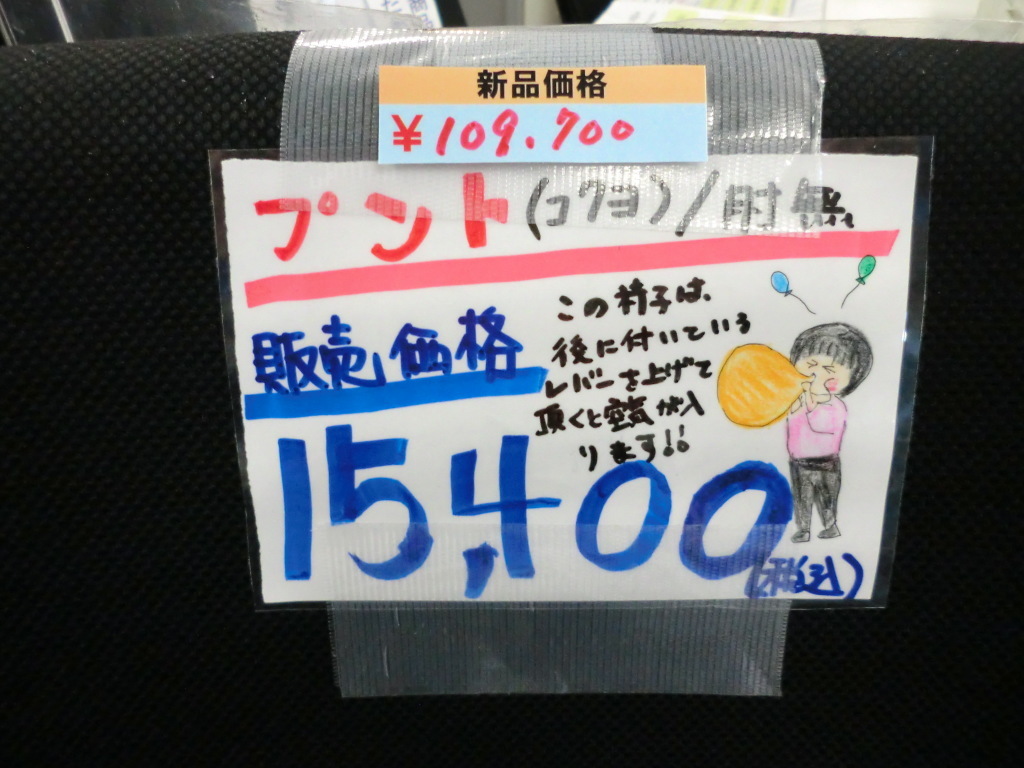 新品価格
¥109.700
プント(コクヨ)/肘無
販売価格
この椅子は、
後に付いている
レバーを上げて
頂くと空気が入
ります!!
15,400
(税込)